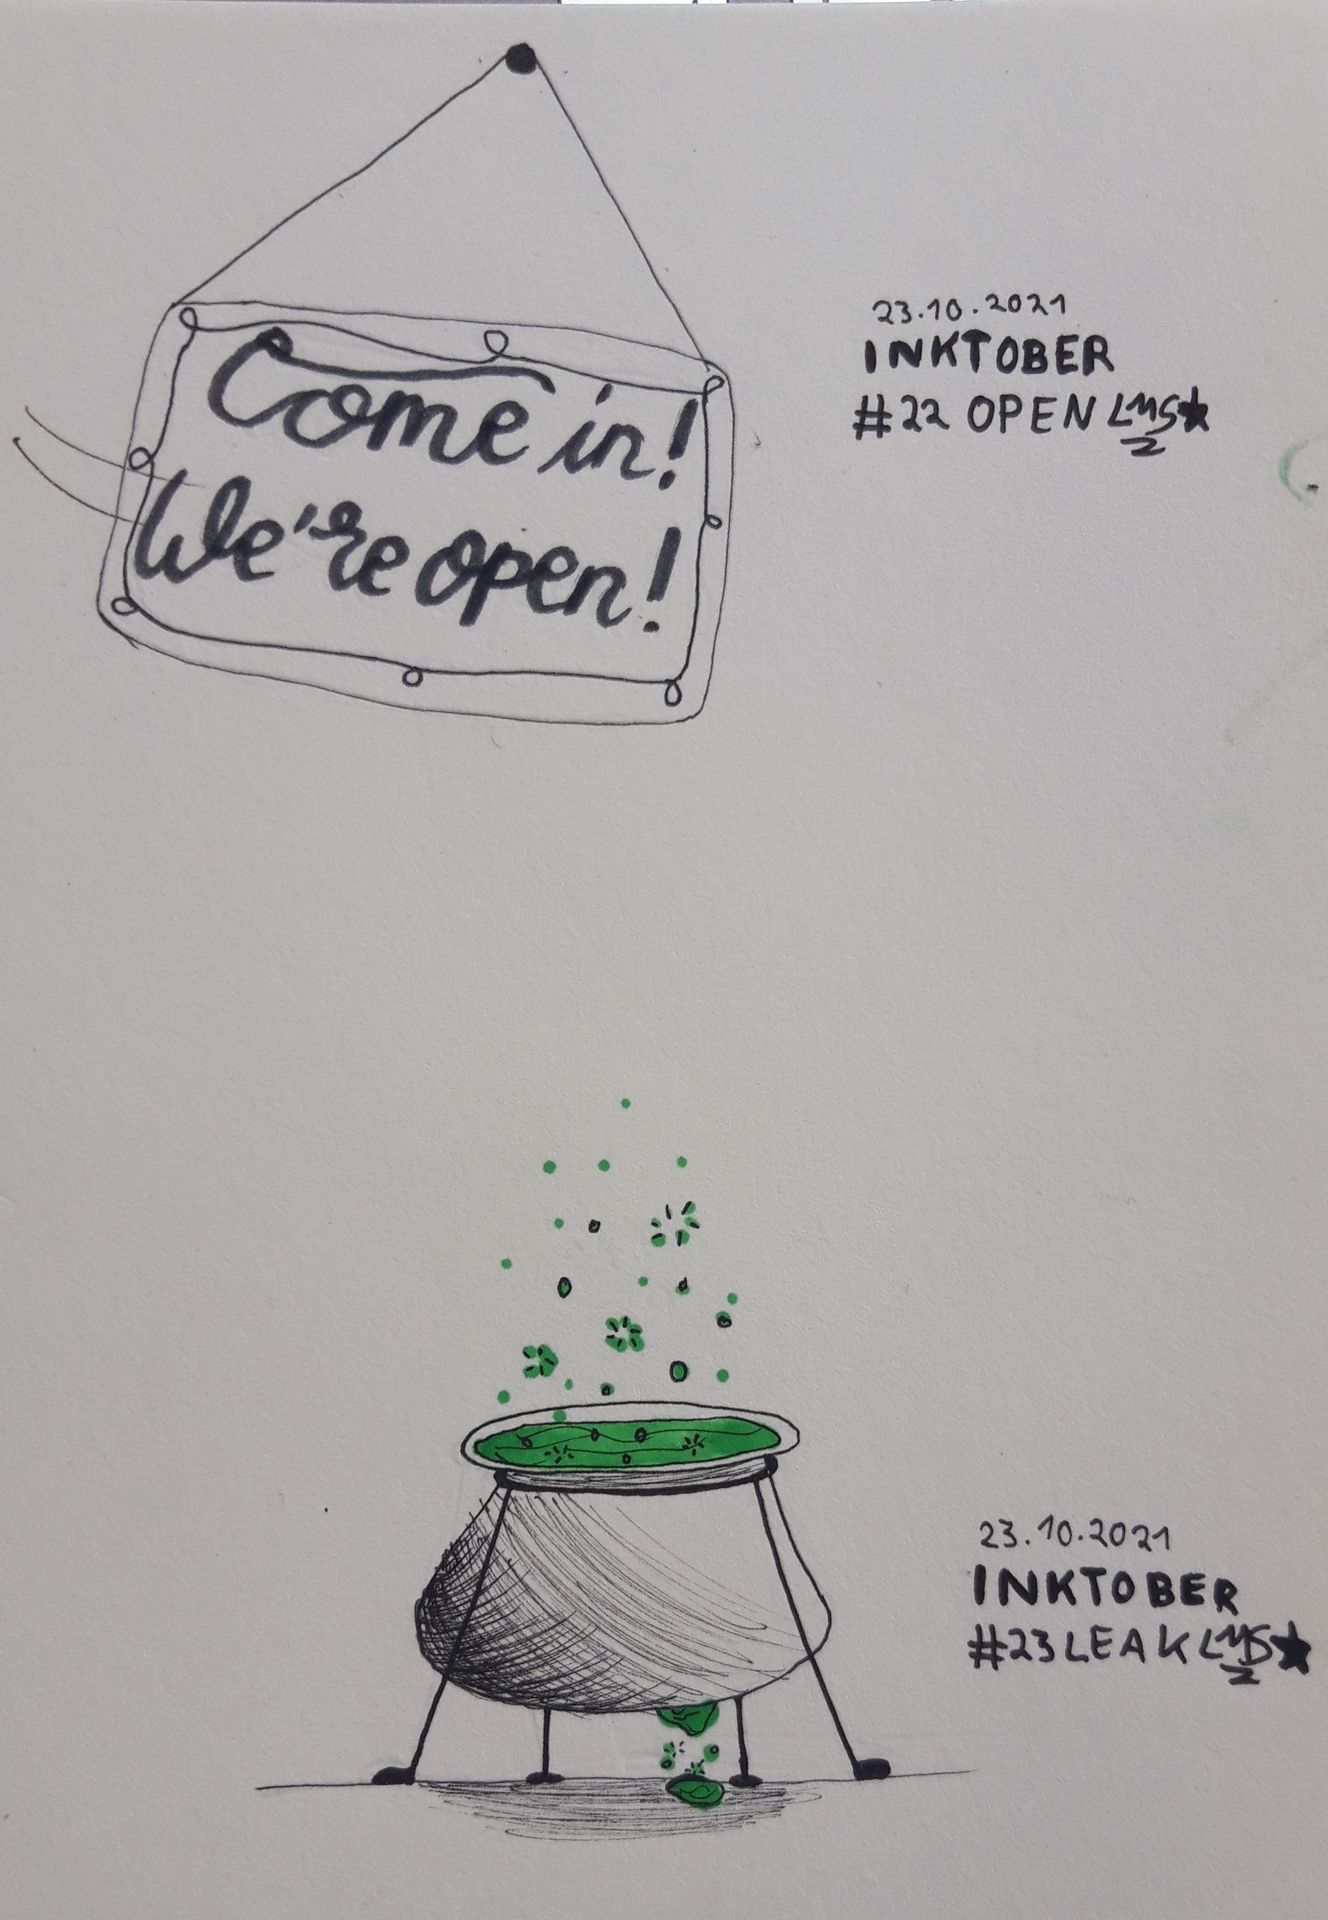 Come in!
We're open!
23.10.2021
INKTOBER
#22 OPEN LMS
23.10.2021
INKTOBER
#23 LEAK LMS